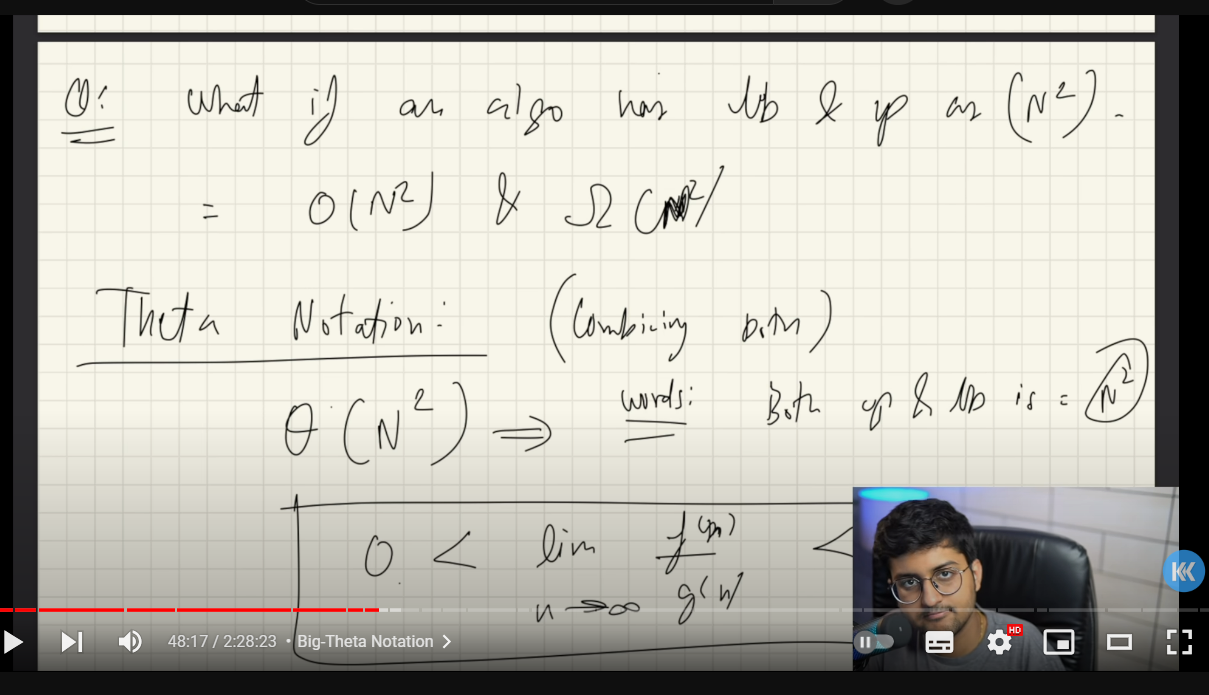 Q: what if an algo has lb & up as (N²).
= O(N²) & Ω(N²)
Theta Notation: (Combining both)
θ(N²) ⇒ words: Both up & lb is = N²
0 < lim n→∞ f(n)/g(n) <
48:17 / 2:28:23 • Big-Theta Notation >
HD